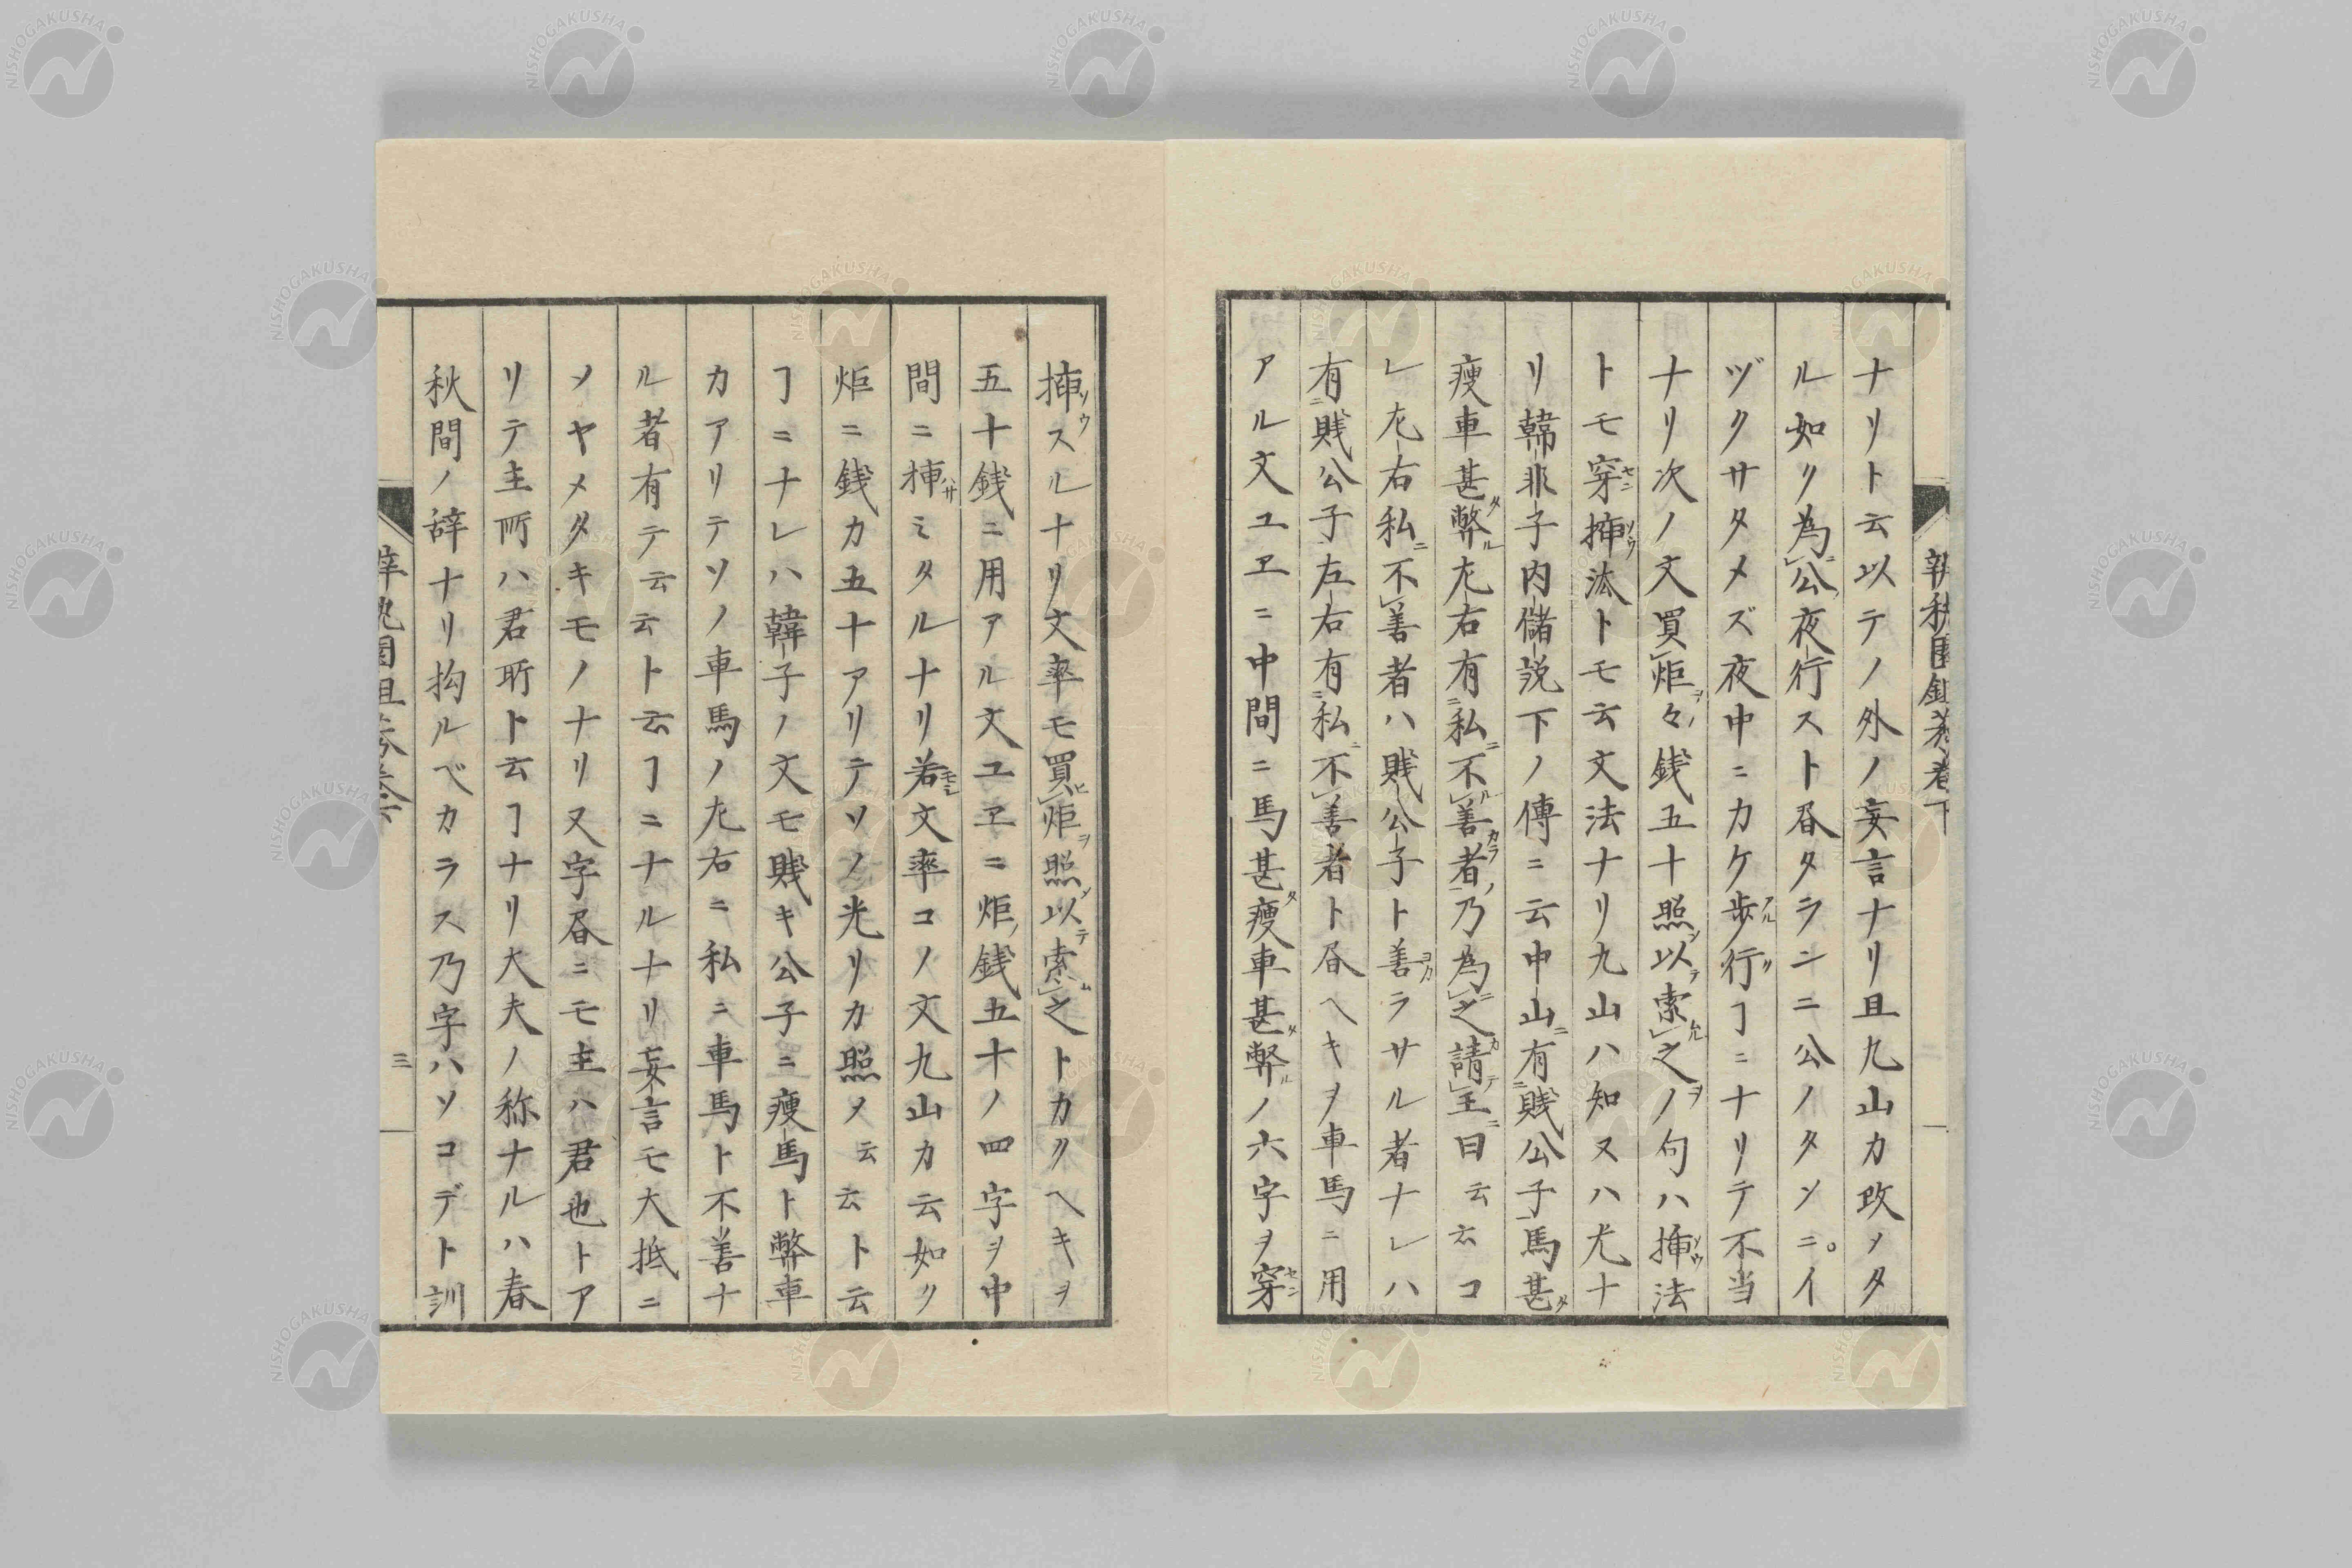 ナリト云以テノ外ノ妄言ナリ且九山カ攻ノタ
ル如ク為公夜行スト昏タランニ公ノタメニ。イ
ヅクサタメズ夜中ニカケ歩行ヿニナリテ不当
ナリ次ノ文買炬々銭五十照以索之ノ句ハ挿法
トモ穿挿法トモ云文法ナリ九山ハ知ヌハ尤ナ
リ韓非子内儲説下ノ傳ニ云中山有賎公子馬甚
痩車甚弊左右有私不善者乃為之請王曰云云コ
レ左右私不善者ハ賎公子ト善ラサル者ナレハ
有賎公子左右有私不善者ト昏ヘキヲ車馬ニ用
アル文ユヱニ中間ニ馬甚痩車甚弊ノ六字ヲ穿
挿スルナリ文率モ買炬照以索之トカクヘキヲ
五十銭ニ用アル文ユヱニ炬銭五十ノ四字ヲ中
間ニ挿ミタルナリ若文率コノ文九山カ云如ク
炬ニ銭カ五十アリテソノ光リカ照メ云云ト云
ヿニナレハ韓子ノ文モ賎キ公子ニ痩馬ト弊車
カアリテソノ車馬ノ左右ニ私ニ車馬ト不善ナ
ル者有テ云云ト云ヿニナルナリ妄言モ大抵ニ
メヤメタキモノナリ又字昏ニモ主ハ君也トア
リテ主所ハ君所ト云ヿナリ大夫ノ称ナルハ春
秋間ノ辞ナリ拘ルベカラス乃字ハソコデト訓
三